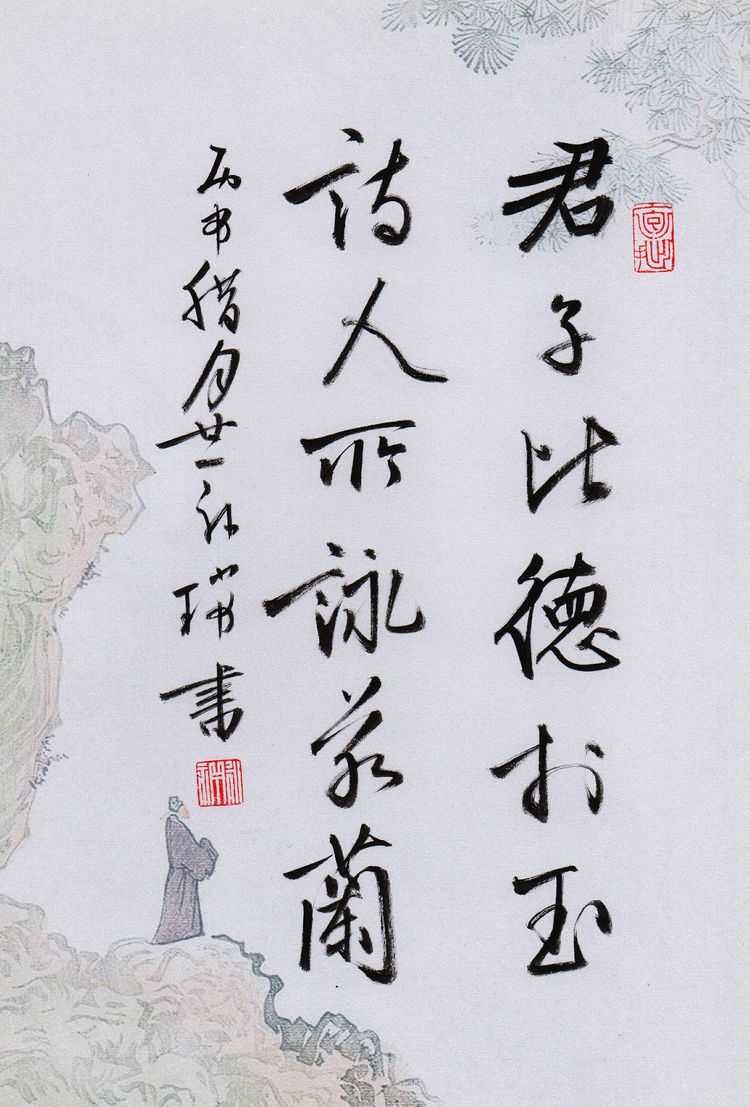 君子比德於玉
詩人所詠若蘭
丙申腊月廿一瑞書